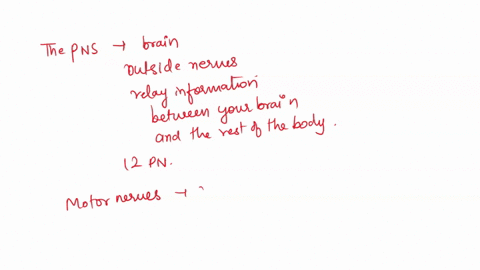 The PNS → brain
outside nerves
relay information
between your brain
and the rest of the body.
12 PN.
Motor nerves →